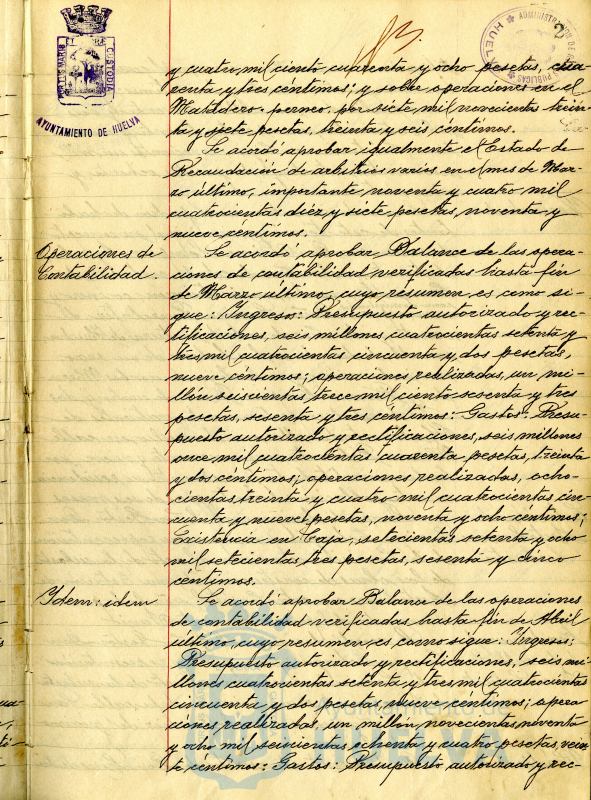 2
AYUNTAMIENTO DE HUELVA
y cuatro mil ciento cuarenta y ocho pesetas, cua-
renta y tres céntimos; y sobre operaciones en el
Matadero perneo, por siete mil novecientas trein
ta y siete pesetas, treinta y seis céntimos.
Se acordó aprobar igualmente el Estado de
Recaudación de arbitrios varios en el mes de Mar-
zo último, importante noventa y cuatro mil
cuatrocientas diéz y siete pesetas, noventa y
nueve céntimos.
Operaciones de
Contabilidad.
Se acordó aprobar Balance de las opera-
ciones de contabilidad verificadas hasta fin
de Marzo último, cuyo resumen es como si-
gue: Ingresos: Presupuesto autorizado y rec-
tificaciones, seis millones cuatrocientas setenta y
tres mil cuatrocientas cincuenta y dos pesetas,
nueve céntimos; operaciones realizadas, un mi-
llón seiscientas trece mil ciento sesenta y tres
pesetas, sesenta y tres céntimos: Gastos: Presu-
puesto autorizado y rectificaciones, seis millones
once mil cuatrocientas cuarenta pesetas, treinta
y dos céntimos; operaciones realizadas, ocho-
cientas treinta y cuatro mil cuatrocientas cin-
cuenta y nueve pesetas, noventa y ocho céntimos;
Existencia en Caja, setecientas setenta y ocho
mil setecientas tres pesetas, sesenta y cinco
céntimos.
Ydem: idem
Se acordó aprobar Balance de las operaciones
de contabilidad verificadas hasta fin de Abril
último, cuyo resumen es como sigue: Ingresos:
Presupuesto autorizado y rectificaciones, seis mi-
llones cuatrocientas setenta y tres mil cuatrocientas
cincuenta y dos pesetas, nueve céntimos; opera
ciones realizadas, un millón novecientas noventa
y ocho mil seiscientas ochenta y cuatro pesetas, vein
te céntimos: Gastos: Presupuesto autorizado y rec-